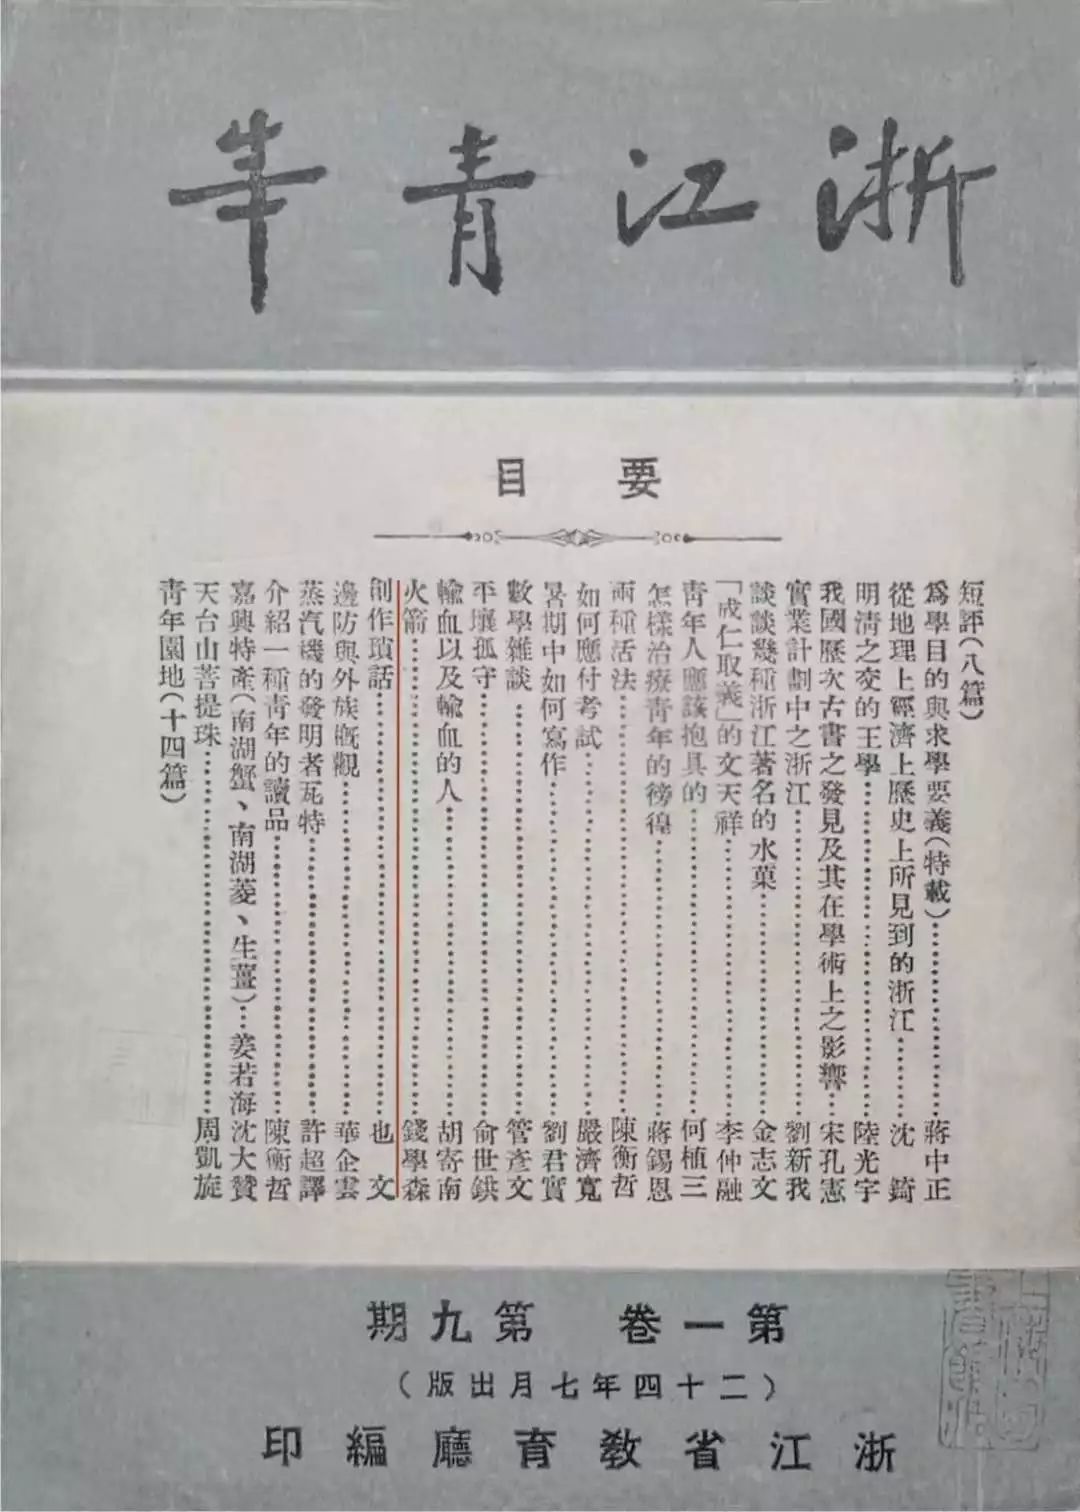 浙江青年
要目
短評（八篇）
為學目的與求學要義（特載）……蔣中正
從地理上經濟上歷史上所見到的浙江……沈錡
明清之交的王學……陸光宇
我國歷次古書之發見及其在學術上之影響……宋孔憲
實業計劃中之浙江……劉新我
談談幾種浙江著名的水菓……金志文
「成仁取義」的文天祥……李仲融
青年人應該抱具的……何植三
怎樣治療青年的徬徨……蔣錫恩
兩種活法……陳衡哲
如何應付考試……嚴濟寬
暑期中如何寫作……劉君實
數學雜談……管彥文
平壤孤守……俞世鉷
輸血以及輸血的人……胡寄南
火箭……錢學森
創作瑣話……也文
邊防與外族概觀……華企雲
蒸汽機的發明者瓦特……許超譯
介紹一種青年的讀品……陳衡哲
嘉興特產（南湖蟹、南湖菱、生薑）…姜若海 沈大贊
天台山菩提珠……周凱旋
青年園地（十四篇）
第一卷 第九期
（二十四年七月出版）
浙江省教育廳編印